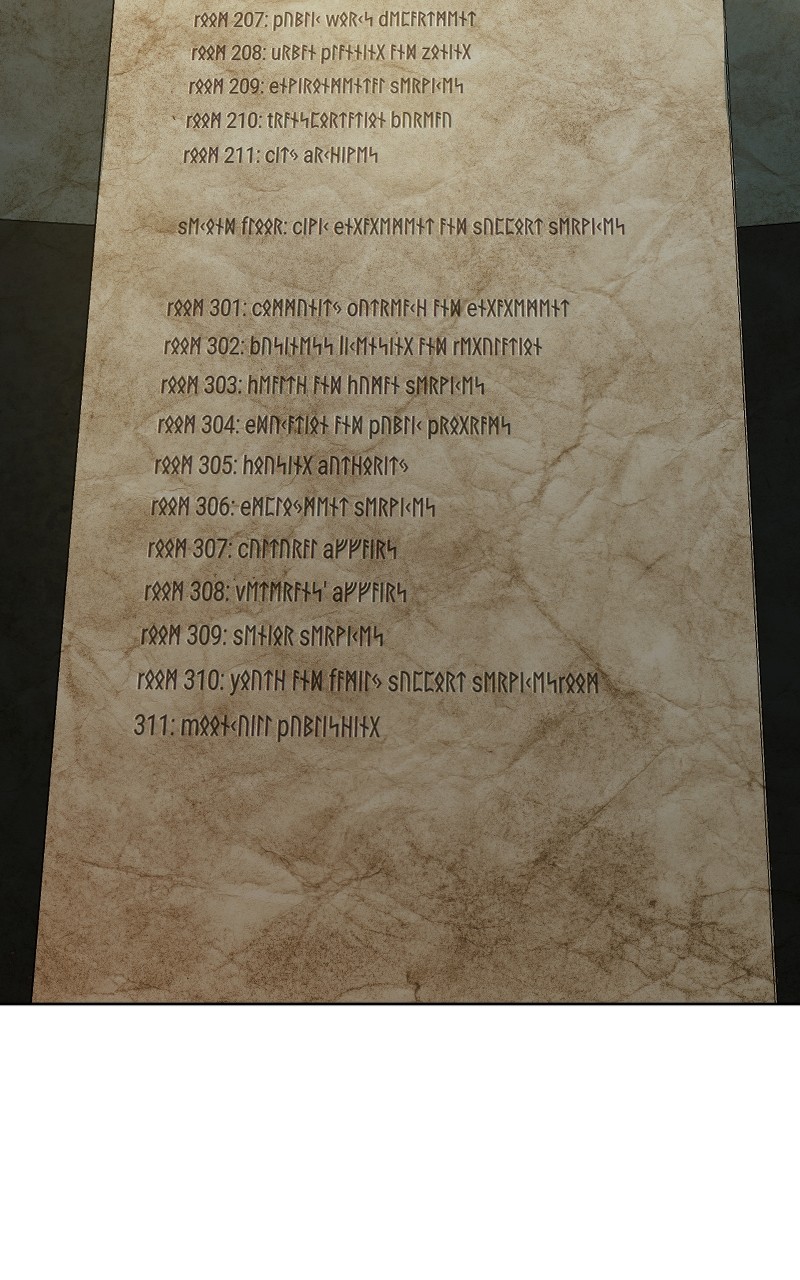 rᛟᛟᛗ 207: pᚢᛒᛚᛁᚲ wᛟᚱᚲᛋ dᛖᛈᚨᚱᛏᛗᛖᚾᛏ
rᛟᛟᛗ 208: uᚱᛒᚨᚾ pᛚᚨᚾᚾᛁᚾᚷ ᚨᚾᛞ zᛟᚾᛁᚾᚷ
rᛟᛟᛗ 209: eᚾᚹᛁᚱᛟᚾᛗᛖᚾᛏᚨᛚ sᛖᚱᚹᛁᚲᛖᛋ
rᛟᛟᛗ 210: tᚱᚨᚾᛋᛈᛟᚱᛏᚨᛏᛁᛟᚾ bᚢᚱᛖᚨᚢ
rᛟᛟᛗ 211: cᛁᛏᛃ aᚱᚲᚺᛁᚹᛖᛋ
sᛖᚲᛟᚾᛞ fᛚᛟᛟᚱ: cᛁᚹᛁᚲ eᚾᚷᚨᚷᛖᛗᛖᚾᛏ ᚨᚾᛞ sᚢᛈᛈᛟᚱᛏ sᛖᚱᚹᛁᚲᛖᛋ
rᛟᛟᛗ 301: cᛟᛗᛗᚢᚾᛁᛏᛃ oᚢᛏᚱᛖᚨᚲᚺ ᚨᚾᛞ eᚾᚷᚨᚷᛖᛗᛖᚾᛏ
rᛟᛟᛗ 302: bᚢᛋᛁᚾᛖᛋᛋ lᛁᚲᛖᚾᛋᛁᚾᚷ ᚨᚾᛞ rᛖᚷᚢᛚᚨᛏᛁᛟᚾ
rᛟᛟᛗ 303: hᛖᚨᛚᛏᚺ ᚨᚾᛞ hᚢᛗᚨᚾ sᛖᚱᚹᛁᚲᛖᛋ
rᛟᛟᛗ 304: eᛞᚢᚲᚨᛏᛁᛟᚾ ᚨᚾᛞ pᚢᛒᛚᛁᚲ pᚱᛟᚷᚱᚨᛗᛋ
rᛟᛟᛗ 305: hᛟᚢᛋᛁᚾᚷ aᚢᛏᚺᛟᚱᛁᛏᛃ
rᛟᛟᛗ 306: eᛗᛈᛚᛟᛃᛗᛖᚾᛏ sᛖᚱᚹᛁᚲᛖᛋ
rᛟᛟᛗ 307: cᚢᛚᛏᚢᚱᚨᛚ aᚠᚠᚨᛁᚱᛋ
rᛟᛟᛗ 308: vᛖᛏᛖᚱᚨᚾᛋ' aᚠᚠᚨᛁᚱᛋ
rᛟᛟᛗ 309: sᛖᚾᛁᛟᚱ sᛖᚱᚹᛁᚲᛖᛋ
rᛟᛟᛗ 310: yᛟᚢᛏᚺ ᚨᚾᛞ fᚨᛗᛁᛚᛃ sᚢᛈᛈᛟᚱᛏ sᛖᚱᚹᛁᚲᛖᛋrᛟᛟᛗ
311: mᛟᛟᚾᚲᚢᛁᛚᛚ pᚢᛒᛚᛁᛋᚺᛁᚾᚷ